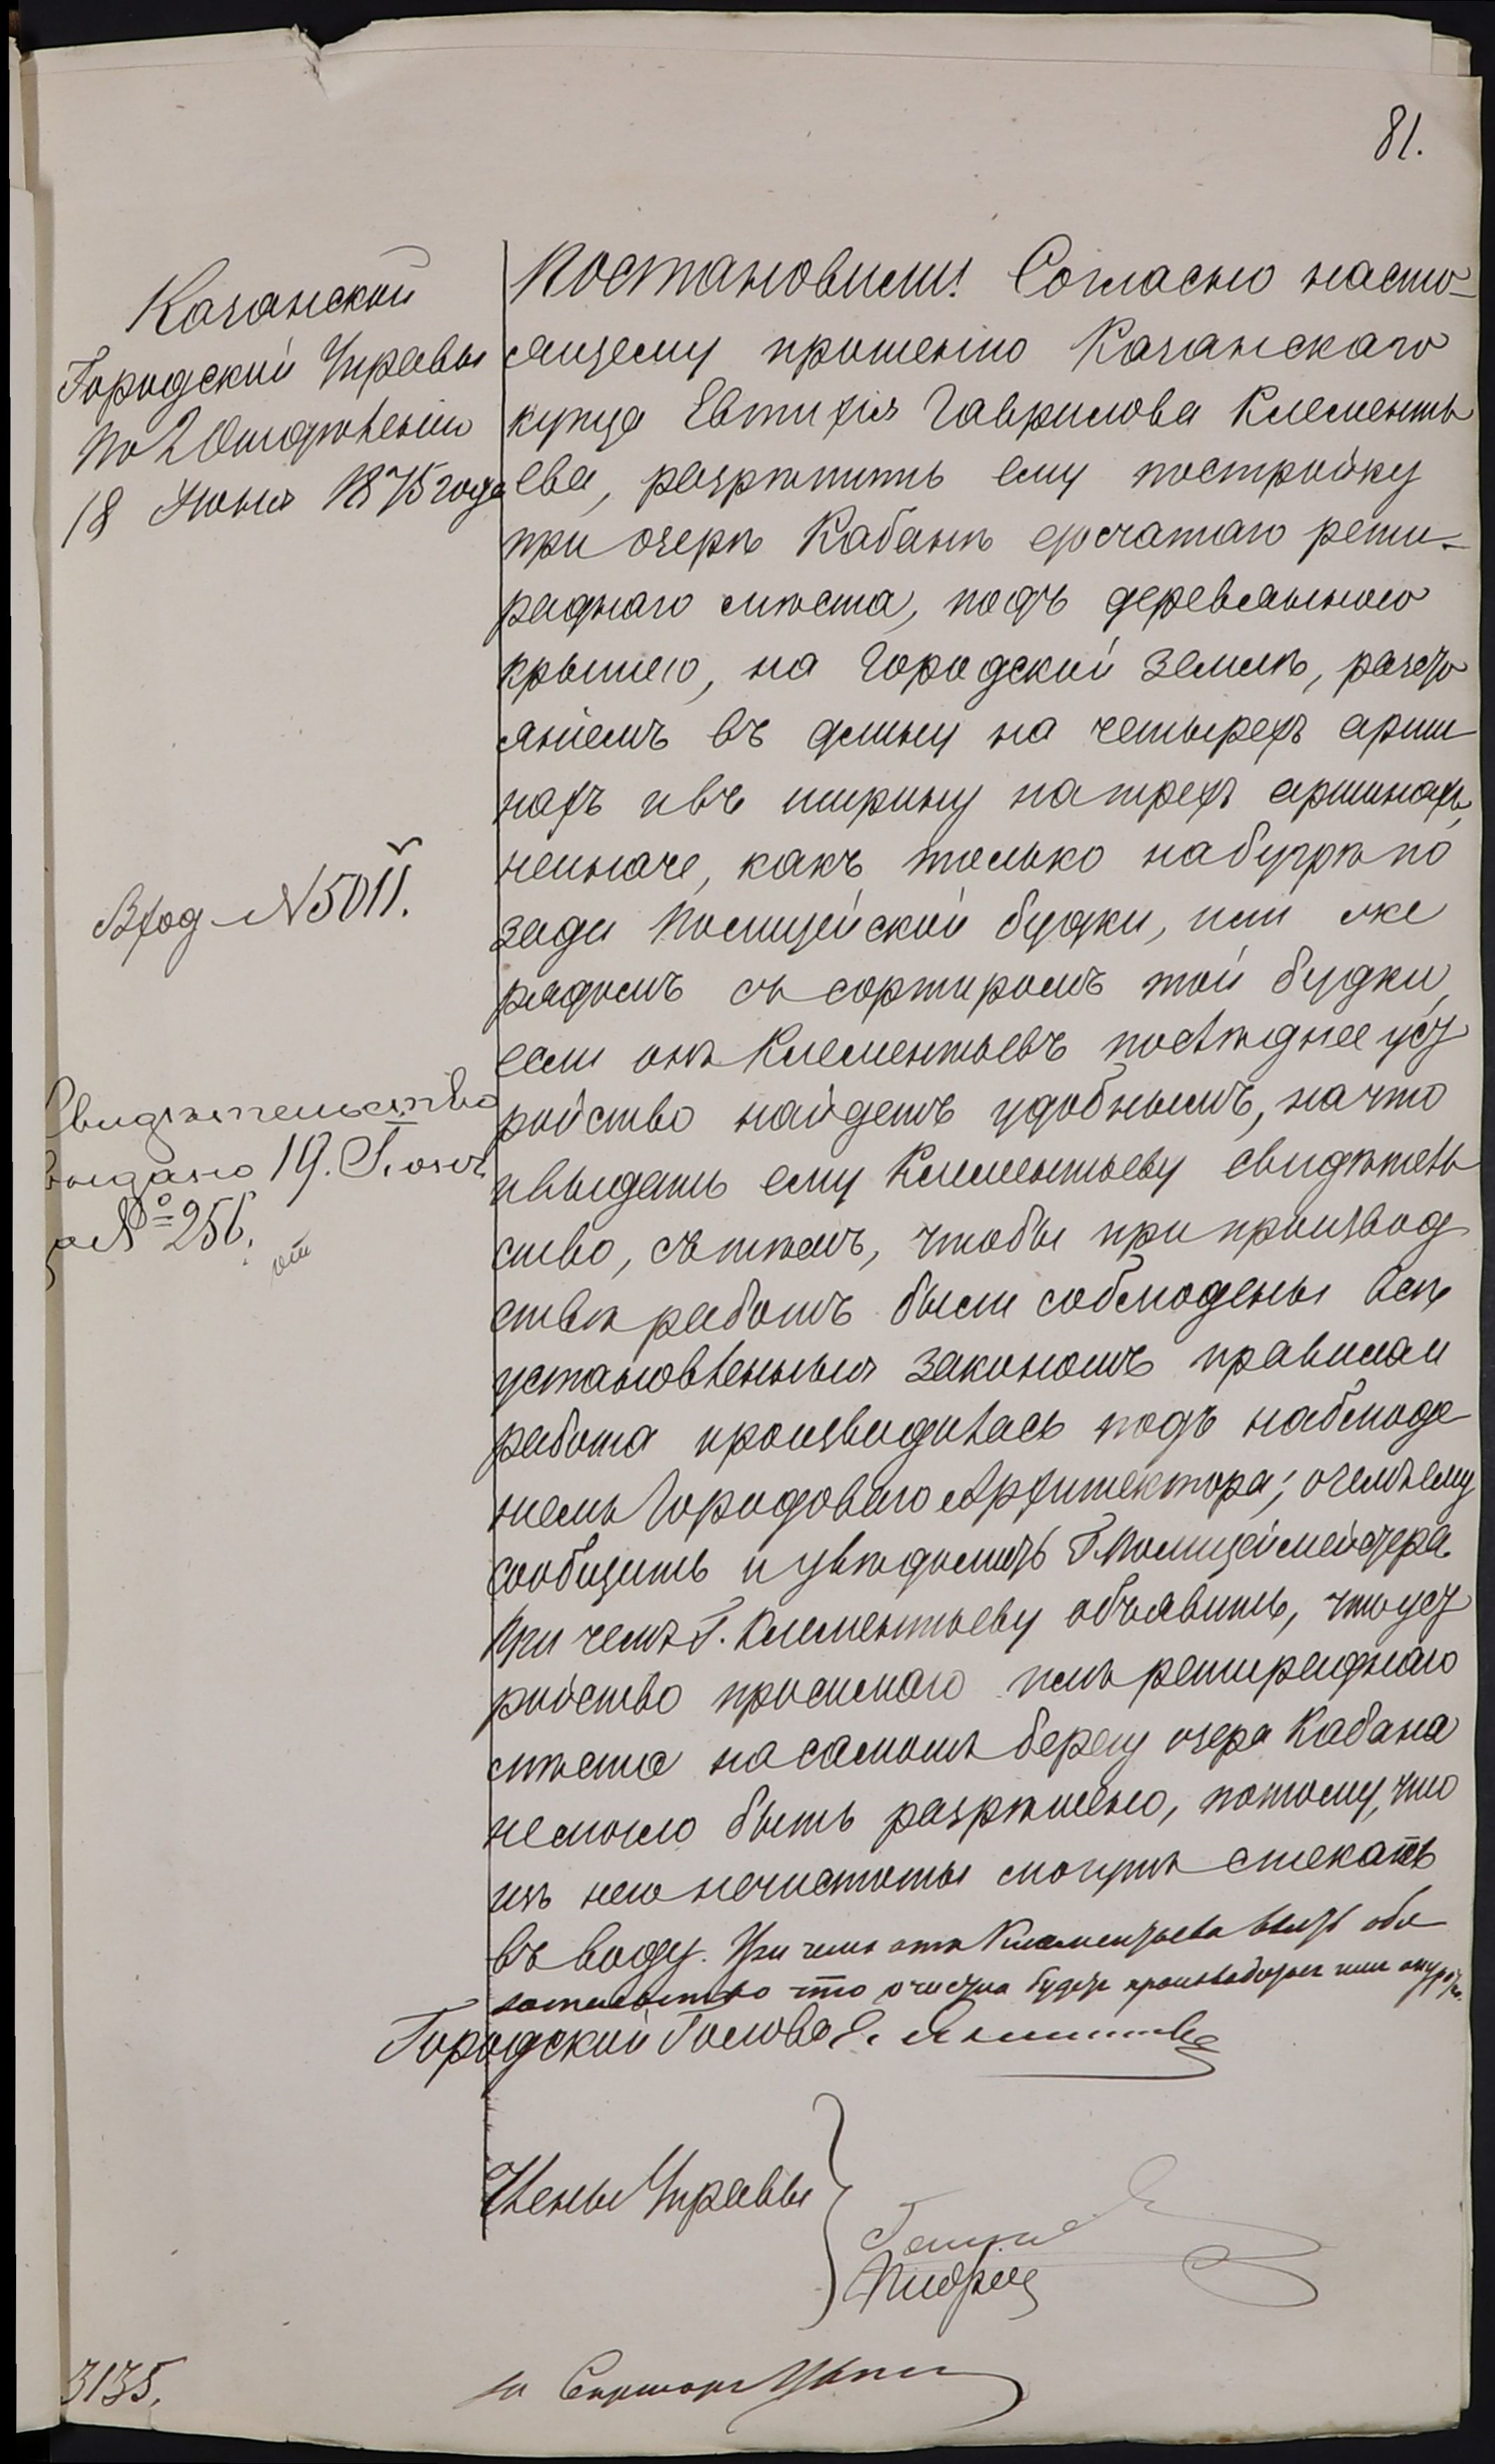 81.
Казанской
Городской Управы
по 2 Отдѣленію
18 Июня 1875 года
Вход. № 5011.
Свидѣтельство
выдано 19. Іюня
за № 256.
Постановили: Согласно насто-
ящему прошенію Казанскаго
купца Евтихія Гаврилова Клементь
ева, разрѣшить ему постройку
при озерѣ Кабанѣ дощатаго рети-
раднаго мѣста, подъ деревянною
крышею, на Городской землѣ, разсто
яніемъ въ длину на четырехъ арши
нахъ и въ ширину на трехъ аршинахъ,
неиначе, какъ только на бугрѣ по
зади Полицейской будки, или же
рядомъ съ сортиромъ той будки,
если онъ Клементьевъ послѣднее уст
ройство найдетъ удобнымъ, на что
и выдать ему Клементьеву свидѣтель
ство, съ тѣмъ, чтобы при производ
ствѣ работъ были соблюдены всѣ
установленныя закономъ правила и
работа производилась подъ наблюде
ніемъ Городоваго Архитектора; о чемъ ему
сообщить и увѣдомить Г. Полицеймейстера
При чемъ Г. Клементьеву объявить, что уст
ройство просимаго имъ ретираднаго
мѣста на самомъ берегу озера Кабана
не могло быть разрѣшено, потому, что
изъ него нечистоты могутъ стекать
въ воду. При чемъ отъ Клементьева взять обя
зательство что очистка будетъ производиться имъ
Городской Голова
Члены Управы
Секретарь
3135.